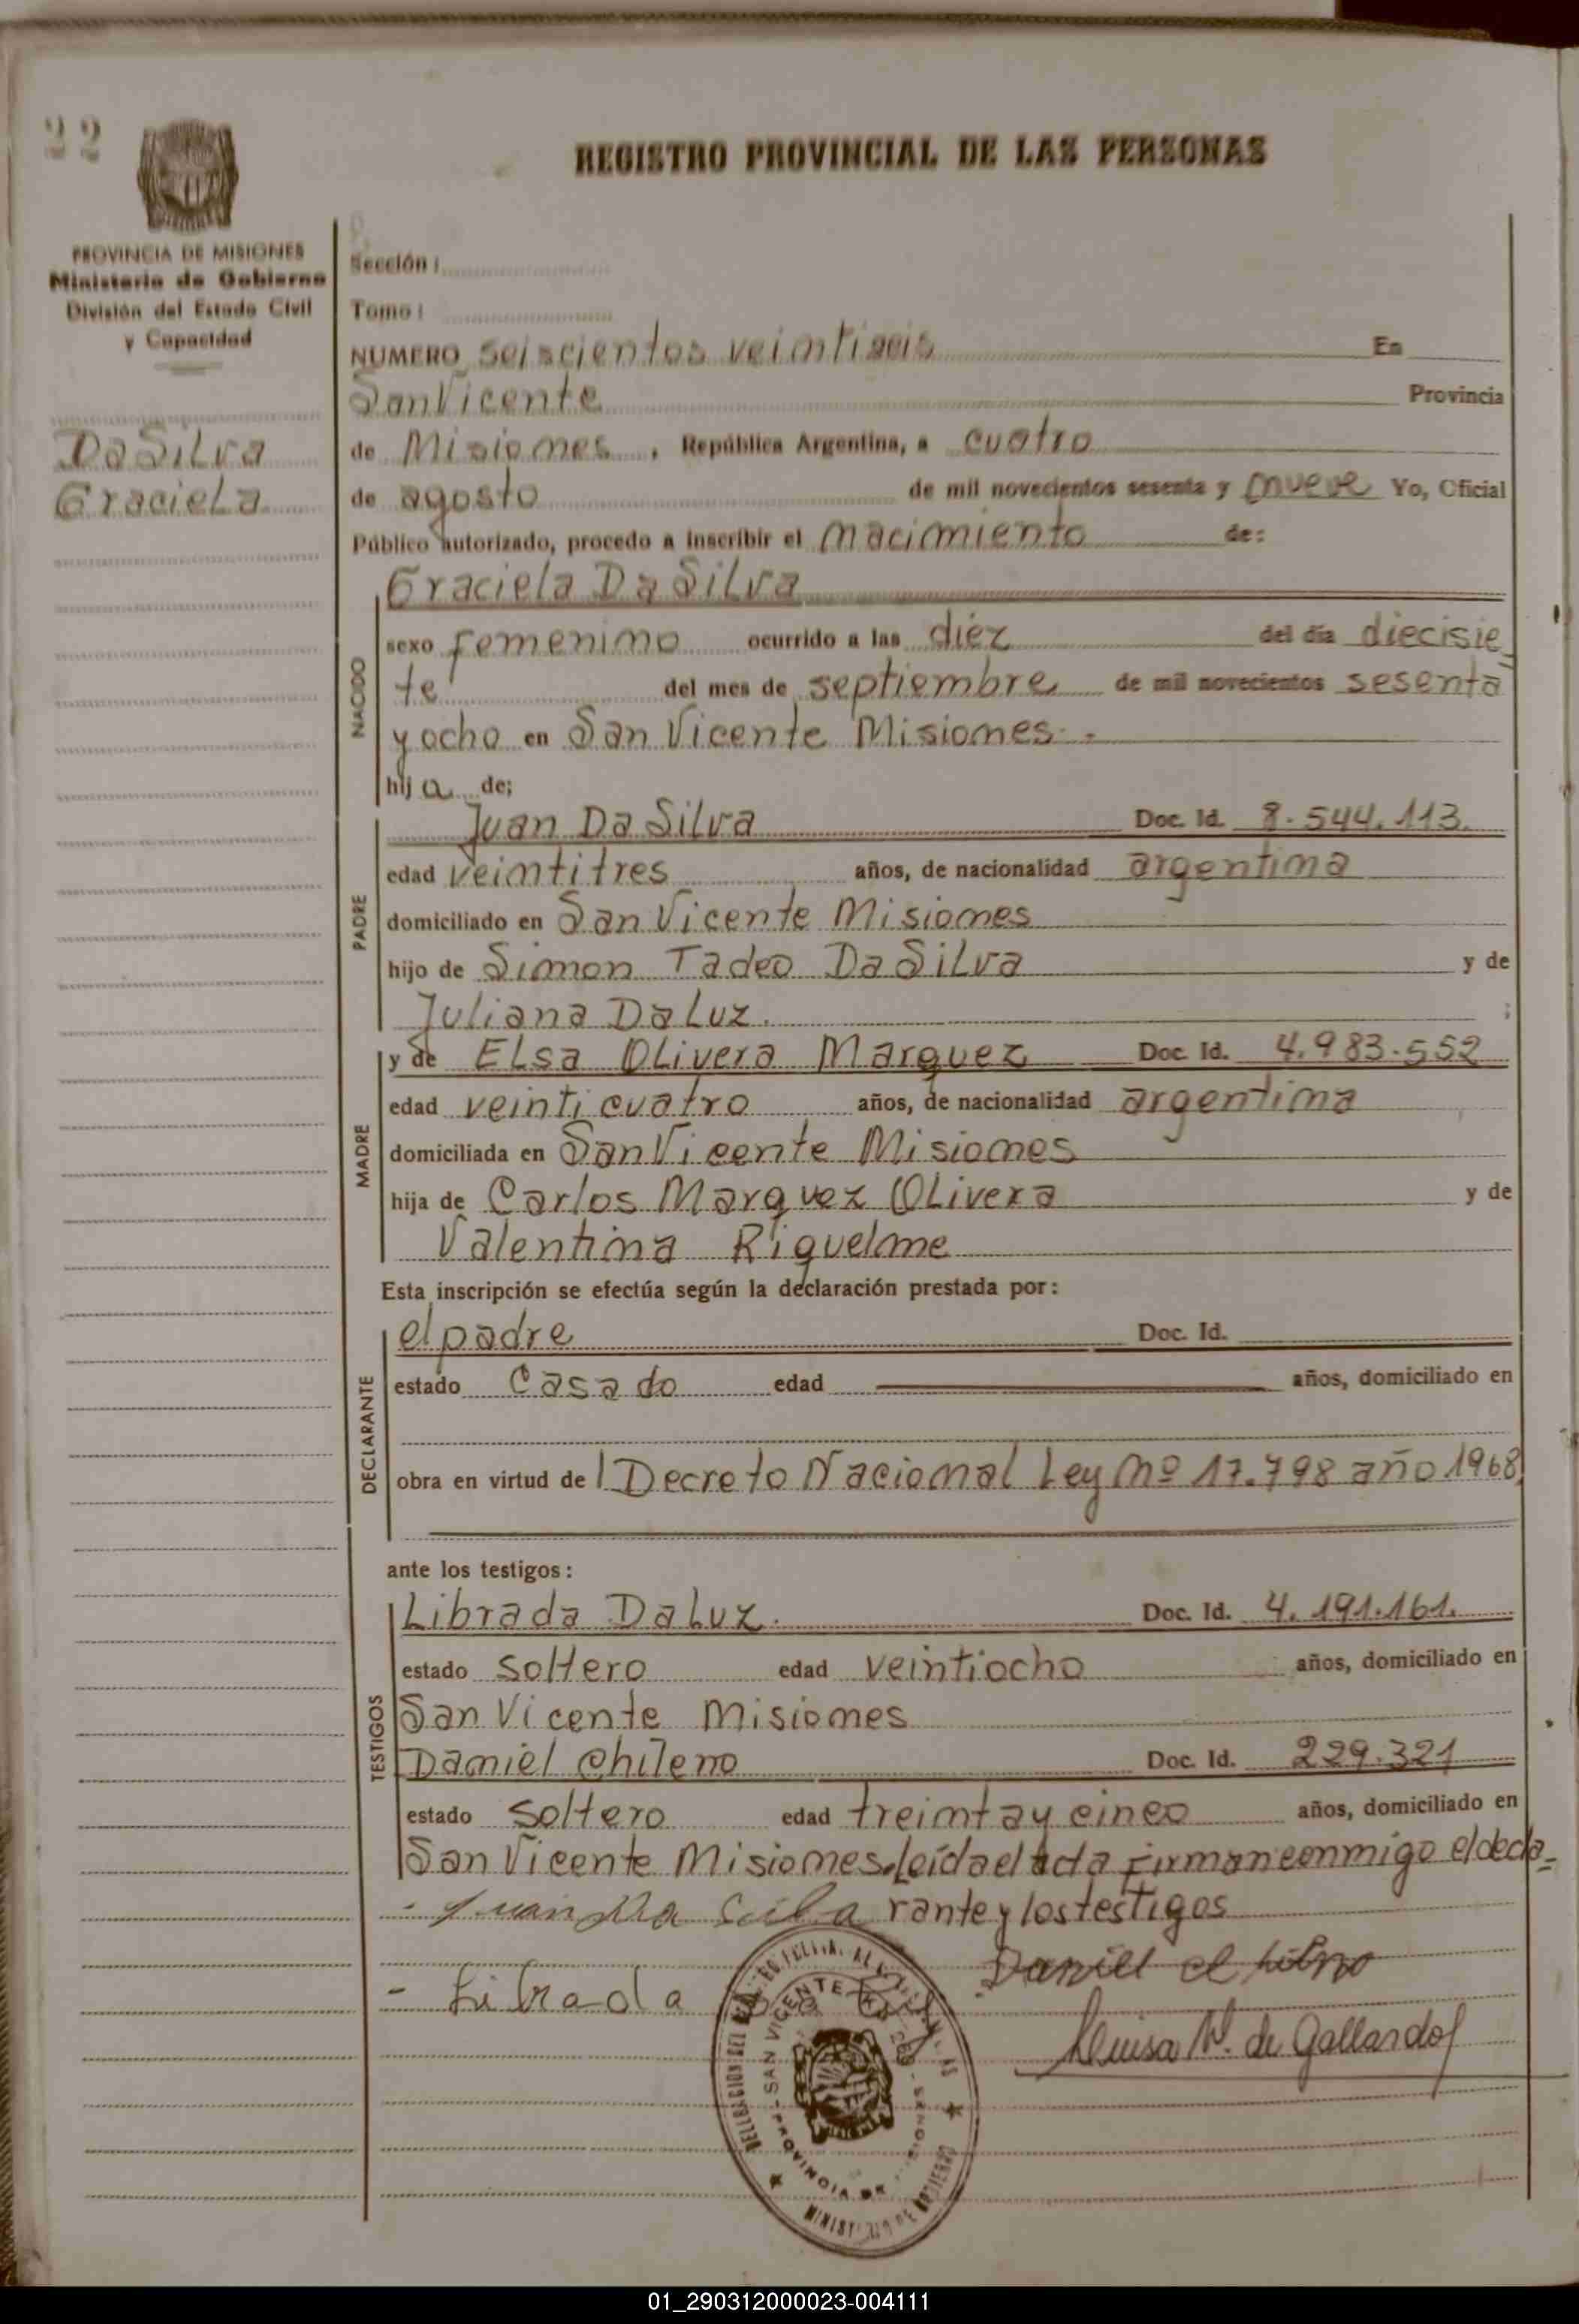 22
REGISTRO PROVINCIAL DE LAS PERSONAS
PROVINCIA DE MISIONES
Ministerio de Gobierno
División del Estado Civil
y Capacidad
DaSilva
Graciela
Sección:
Tomo:
NUMERO seiscientos veintiseis En
San Vicente Provincia
de Misiones, República Argentina, a cuatro
de agosto de mil novecientos sesenta y nueve Yo, Oficial
Público autorizado, procedo a inscribir el nacimiento de:
Graciela Da Silva
NACIDO
sexo femenino ocurrido a las diez del día diecisie-
te del mes de septiembre de mil novecientos sesenta
y ocho en San Vicente Misiones.-
hija de;
PADRE
Juan Da Silva Doc. Id. 8.544.113.
edad veintitres años, de nacionalidad argentina
domiciliado en San Vicente Misiones
hijo de Simon Tadeo Da Silva y de
Juliana Da Luz. ;
MADRE
y de Elsa Olivera Marquez Doc. Id. 4.983.552
edad veinticuatro años, de nacionalidad argentina
domiciliada en San Vicente Misiones
hija de Carlos Marquez Olivera y de
Valentina Riquelme
Esta inscripción se efectúa según la declaración prestada por:
DECLARANTE
el padre Doc. Id.
estado casado edad años, domiciliado en
obra en virtud de l Decreto Nacional Ley Nº 17.798 año 1968
ante los testigos:
TESTIGOS
Librada Da Luz. Doc. Id. 4.191.161.
estado soltero edad veintiocho años, domiciliado en
San Vicente Misiones
Daniel Chileno Doc. Id. 229.321
estado soltero edad treinta y cinco años, domiciliado en
San Vicente Misiones. Leída el acta firman conmigo el decla-
rante y los testigos
- Juan Da Silva
Daniel
- Librada Da
Luisa de Gallardo
SAN VICENTE
PROVINCIA DE
01_290312000023-004111